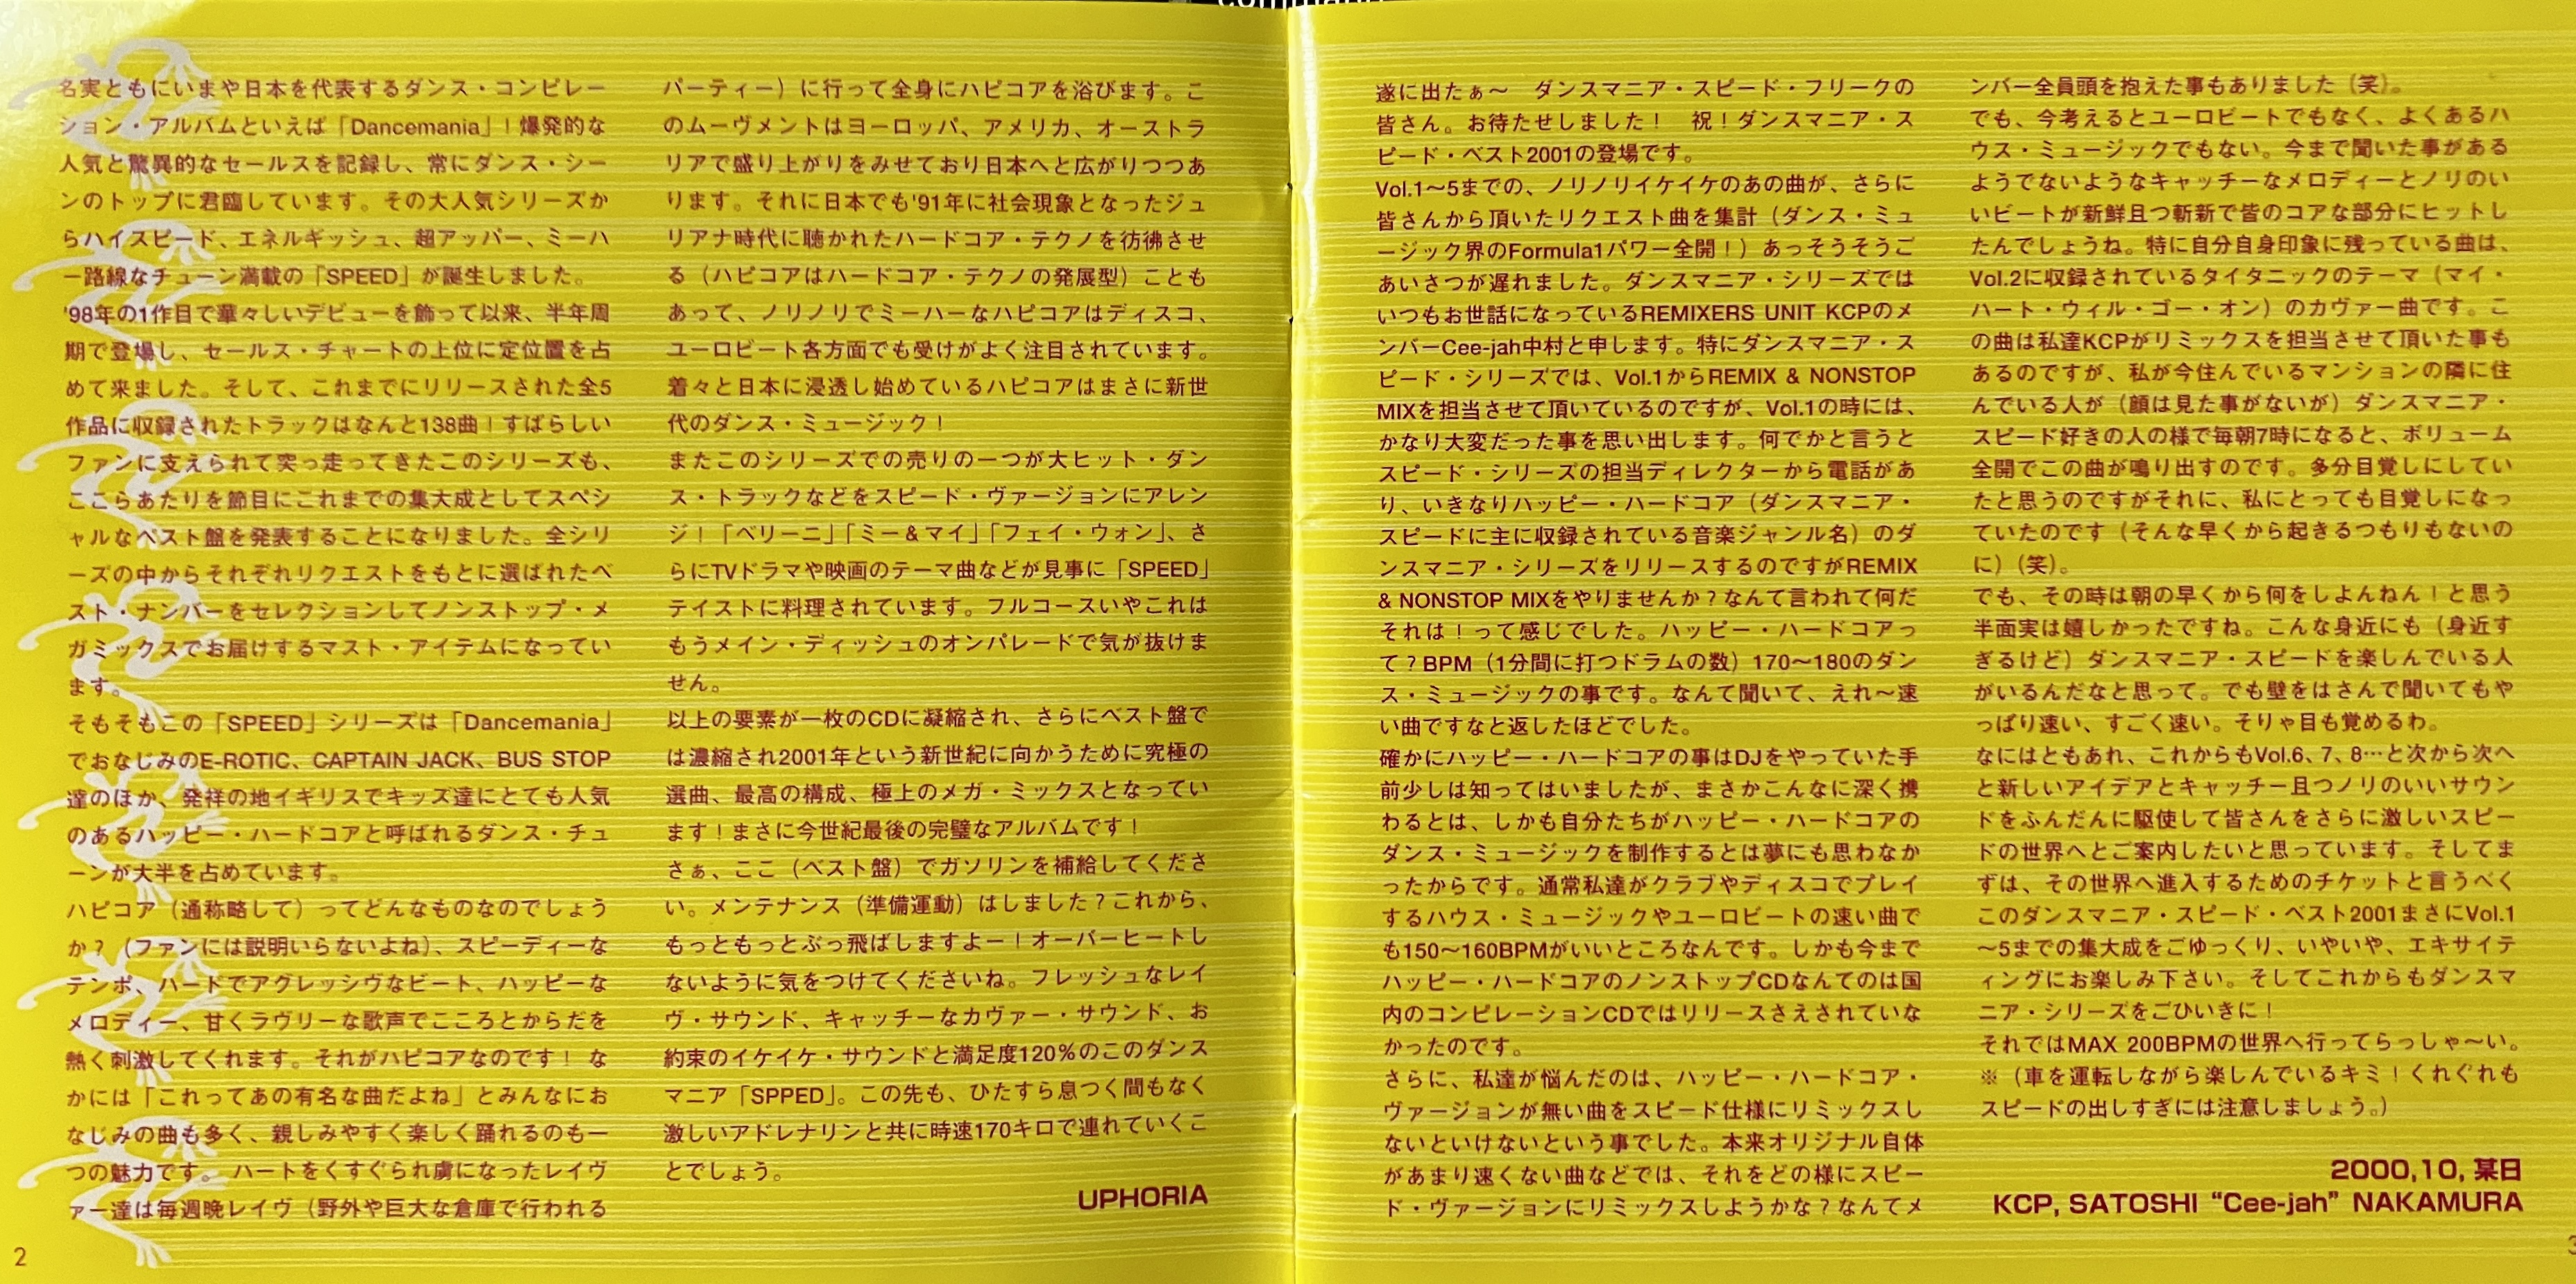 名実ともにいまや日本を代表するダンス・コンピレー
ション・アルバムといえば「Dancemania」！爆発的な
人気と驚異的なセールスを記録し、常にダンス・シー
ンのトップに君臨しています。その大人気シリーズか
らハイスピード、エネルギッシュ、超アッパー、ミーハ
ー路線なチューン満載の「SPEED」が誕生しました。
'98年の1作目で華々しいデビューを飾って以来、半年周
期で登場し、セールス・チャートの上位に定位置を占
めて来ました。そして、これまでにリリースされた全5
作品に収録されたトラックはなんと138曲！すばらしい
ファンに支えられて突っ走ってきたこのシリーズも、
ここらあたりを節目にこれまでの集大成としてスペシ
ャルなベスト盤を発表することになりました。全シリ
ーズの中からそれぞれリクエストをもとに選ばれたベ
スト・ナンバーをセレクションしてノンストップ・メ
ガミックスでお届けするマスト・アイテムになってい
ます。
そもそもこの「SPEED」シリーズは「Dancemania」
でおなじみのE-ROTIC、CAPTAIN JACK、BUS STOP
達のほか、発祥の地イギリスでキッズ達にとても人気
のあるハッピー・ハードコアと呼ばれるダンス・チュ
ーンが大半を占めています。
ハピコア（通称略して）ってどんなものなのでしょう
か？（ファンには説明いらないよね）、スピーディーな
テンポ、ハードでアグレッシヴなビート、ハッピーな
メロディー、甘くラヴリーな歌声でこころとからだを
熱く刺激してくれます。それがハピコアなのです！ な
かには「これってあの有名な曲だよね」とみんなにお
なじみの曲も多く、親しみやすく楽しく踊れるのも一
つの魅力です。 ハートをくすぐられ虜になったレイヴ
ァー達は毎週晩レイヴ（野外や巨大な倉庫で行われる
パーティー）に行って全身にハピコアを浴びます。こ
のムーヴメントはヨーロッパ、アメリカ、オーストラ
リアで盛り上がりをみせており日本へと広がりつつあ
ります。それに日本でも'91年に社会現象となったジュ
リアナ時代に聴かれたハードコア・テクノを彷彿させ
る（ハピコアはハードコア・テクノの発展型）ことも
あって、ノリノリでミーハーなハピコアはディスコ、
ユーロビート各方面でも受けがよく注目されています。
着々と日本に浸透し始めているハピコアはまさに新世
代のダンス・ミュージック！
またこのシリーズでの売りの一つが大ヒット・ダン
ス・トラックなどをスピード・ヴァージョンにアレン
ジ！「ベリーニ」「ミー＆マイ」「フェイ・ウォン」、さ
らにTVドラマや映画のテーマ曲などが見事に「SPEED」
テイストに料理されています。フルコースいやこれは
もうメイン・ディッシュのオンパレードで気が抜けま
せん。
以上の要素が一枚のCDに凝縮され、さらにベスト盤で
は濃縮され2001年という新世紀に向かうために究極の
選曲、最高の構成、極上のメガ・ミックスとなってい
ます！まさに今世紀最後の完璧なアルバムです！
さぁ、ここ（ベスト盤）でガソリンを補給してくださ
い。メンテナンス（準備運動）はしました？これから、
もっともっとぶっ飛ばしますよー！オーバーヒートし
ないように気をつけてくださいね。フレッシュなレイ
ヴ・サウンド、キャッチーなカヴァー・サウンド、お
約束のイケイケ・サウンドと満足度120％のこのダンス
マニア「SPPED」。この先も、ひたすら息つく間もなく
激しいアドレナリンと共に時速170キロで連れていくこ
とでしょう。
UPHORIA
2
遂に出たぁ〜　ダンスマニア・スピード・フリークの
皆さん。お待たせしました！　祝！ダンスマニア・ス
ピード・ベスト2001の登場です。
Vol.1〜5までの、ノリノリイケイケのあの曲が、さらに
皆さんから頂いたリクエスト曲を集計（ダンス・ミュ
ージック界のFormula1パワー全開！）あっそうそうご
あいさつが遅れました。ダンスマニア・シリーズでは
いつもお世話になっているREMIXERS UNIT KCPのメ
ンバーCee-jah中村と申します。特にダンスマニア・ス
ピード・シリーズでは、Vol.1からREMIX & NONSTOP
MIXを担当させて頂いているのですが、Vol.1の時には、
かなり大変だった事を思い出します。何でかと言うと
スピード・シリーズの担当ディレクターから電話があ
り、いきなりハッピー・ハードコア（ダンスマニア・
スピードに主に収録されている音楽ジャンル名）のダ
ンスマニア・シリーズをリリースするのですがREMIX
& NONSTOP MIXをやりませんか？なんて言われて何だ
それは！って感じでした。ハッピー・ハードコアっ
て？BPM（1分間に打つドラムの数）170〜180のダン
ス・ミュージックの事です。なんて聞いて、えれ〜速
い曲ですなと返したほどでした。
確かにハッピー・ハードコアの事はDJをやっていた手
前少しは知ってはいましたが、まさかこんなに深く携
わるとは、しかも自分たちがハッピー・ハードコアの
ダンス・ミュージックを制作するとは夢にも思わなか
ったからです。通常私達がクラブやディスコでプレイ
するハウス・ミュージックやユーロビートの速い曲で
も150〜160BPMがいいところなんです。しかも今まで
ハッピー・ハードコアのノンストップCDなんてのは国
内のコンピレーションCDではリリースさえされていな
かったのです。
さらに、私達が悩んだのは、ハッピー・ハードコア・
ヴァージョンが無い曲をスピード仕様にリミックスし
ないといけないという事でした。本来オリジナル自体
があまり速くない曲などでは、それをどの様にスピー
ド・ヴァージョンにリミックスしようかな？なんてメ
ンバー全員頭を抱えた事もありました（笑）。
でも、今考えるとユーロビートでもなく、よくあるハ
ウス・ミュージックでもない。今まで聞いた事がある
ようでないようなキャッチーなメロディーとノリのい
いビートが新鮮且つ斬新で皆のコアな部分にヒットし
たんでしょうね。特に自分自身印象に残っている曲は、
Vol.2に収録されているタイタニックのテーマ（マイ・
ハート・ウィル・ゴー・オン）のカヴァー曲です。こ
の曲は私達KCPがリミックスを担当させて頂いた事も
あるのですが、私が今住んでいるマンションの隣に住
んでいる人が（顔は見た事がないが）ダンスマニア・
スピード好きの人の様で毎朝7時になると、ボリューム
全開でこの曲が鳴り出すのです。多分目覚しにしてい
たと思うのですがそれに、私にとっても目覚しになっ
ていたのです（そんな早くから起きるつもりもないの
に）（笑）。
でも、その時は朝の早くから何をしよんねん！と思う
半面実は嬉しかったですね。こんな身近にも（身近す
ぎるけど）ダンスマニア・スピードを楽しんでいる人
がいるんだなと思って。でも壁をはさんで聞いてもや
っぱり速い、すごく速い。そりゃ目も覚めるわ。
なにはともあれ、これからもVol.6、7、8…と次から次へ
と新しいアイデアとキャッチー且つノリのいいサウン
ドをふんだんに駆使して皆さんをさらに激しいスピー
ドの世界へとご案内したいと思っています。そしてま
ずは、その世界へ進入するためのチケットと言うべく
このダンスマニア・スピード・ベスト2001まさにVol.1
〜5までの集大成をごゆっくり、いやいや、エキサイテ
ィングにお楽しみ下さい。そしてこれからもダンスマ
ニア・シリーズをごひいきに！
それではMAX 200BPMの世界へ行ってらっしゃ〜い。
※（車を運転しながら楽しんでいるキミ！くれぐれも
スピードの出しすぎには注意しましょう。）
2000,10, 某日
KCP, SATOSHI “Cee-jah” NAKAMURA